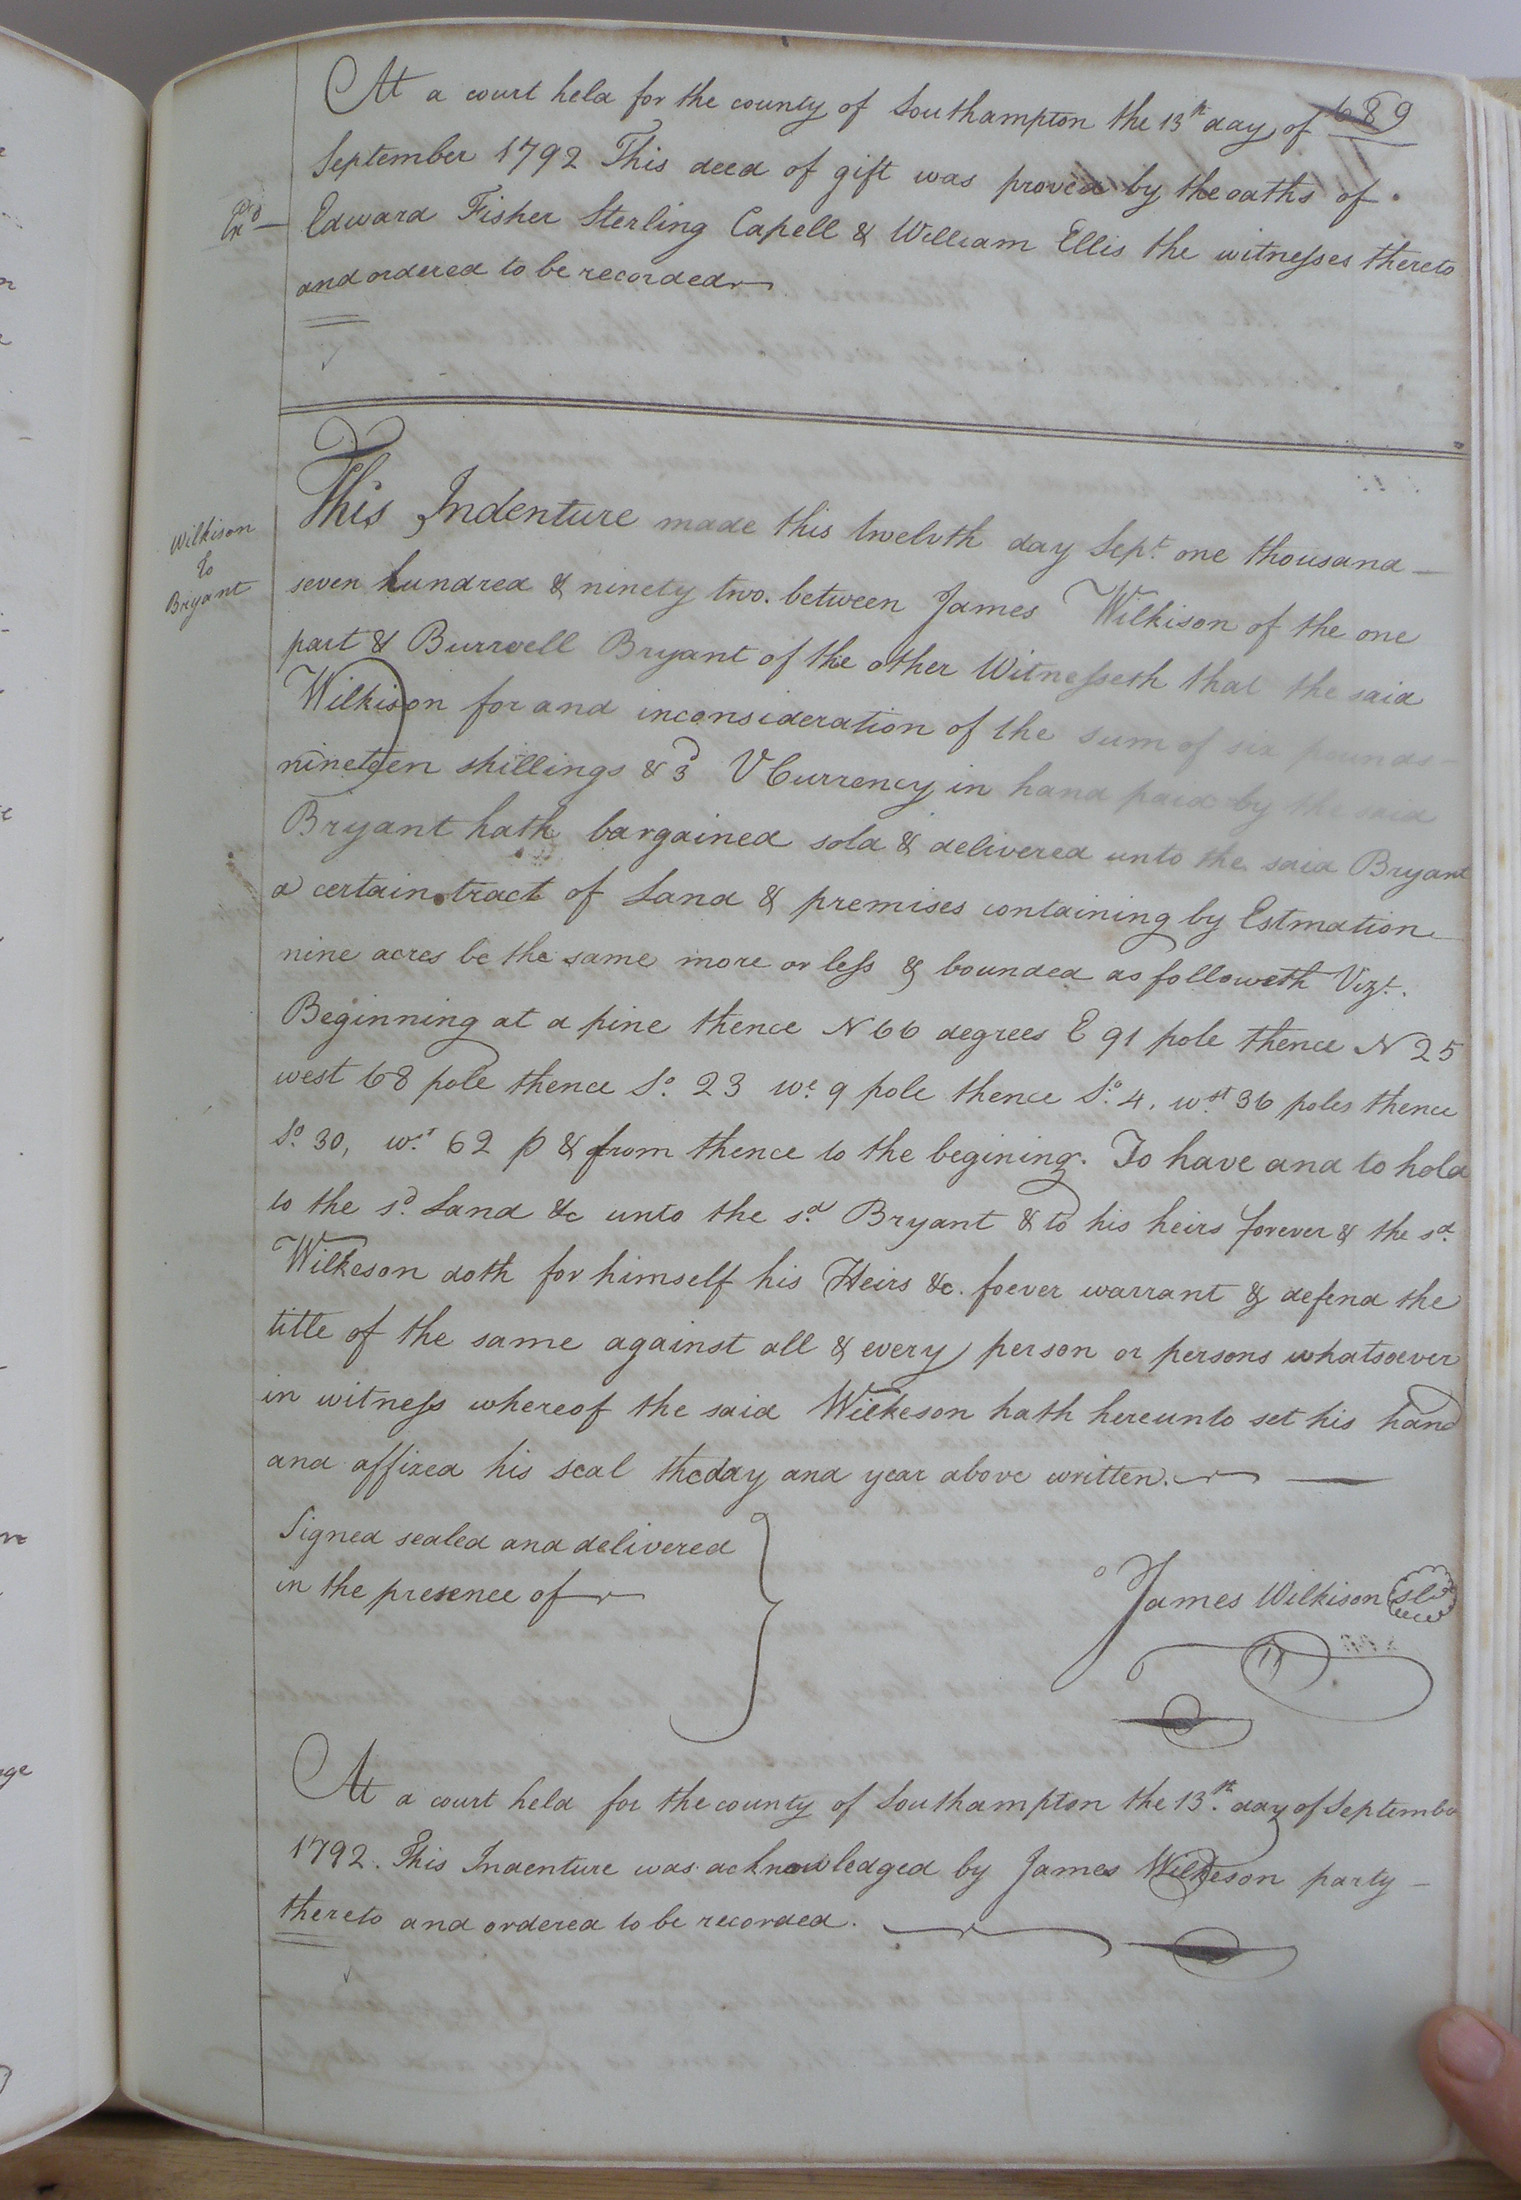 689
At a court held for the county of Southampton the 13th day of
September 1792 This deed of gift was proved by the oaths of
Edward Fisher Sterling Capell & William Ellis the witnesses thereto
and ordered to be recorded
Wilkison
to
Bryant
This Indenture made this twelvth day Sept. one thousand
seven hundred & ninety two. between James Wilkison of the one
part & Burwell Bryant of the other Witnesseth that the said
Wilkison for and inconsideration of the sum of six pounds
nineteen shillings & 3d V Currency in hand paid by the said
Bryant hath bargained sold & delivered unto the said Bryant
a certain tract of Land & premises containing by Estmation
nine acres be the same more or less & bounded as followeth Vizt.
Beginning at a pine thence N 66 degrees E 91 pole thence N 25
west 68 pole thence So. 23 we. 9 pole thence So. 4. wst. 36 poles thence
So. 30, wst. 62 p & from thence to the begining. To have and to hold
to the sd. Land &c unto the sd. Bryant & to his heirs forever & the sd.
Wilkeson doth for himself his Heirs &c. foever warrant & defend the
title of the same against all & every person or persons whatsoever
in witness whereof the said Wilkeson hath hereunto set his hand
and affixed his seal the day and year above written.
Signed sealed and delivered
in the presence of
James Wilkison
At a court held for the county of Southampton the 13th. day of September
1792. This Indenture was acknowledged by James Wilkeson party
thereto and ordered to be recorded.